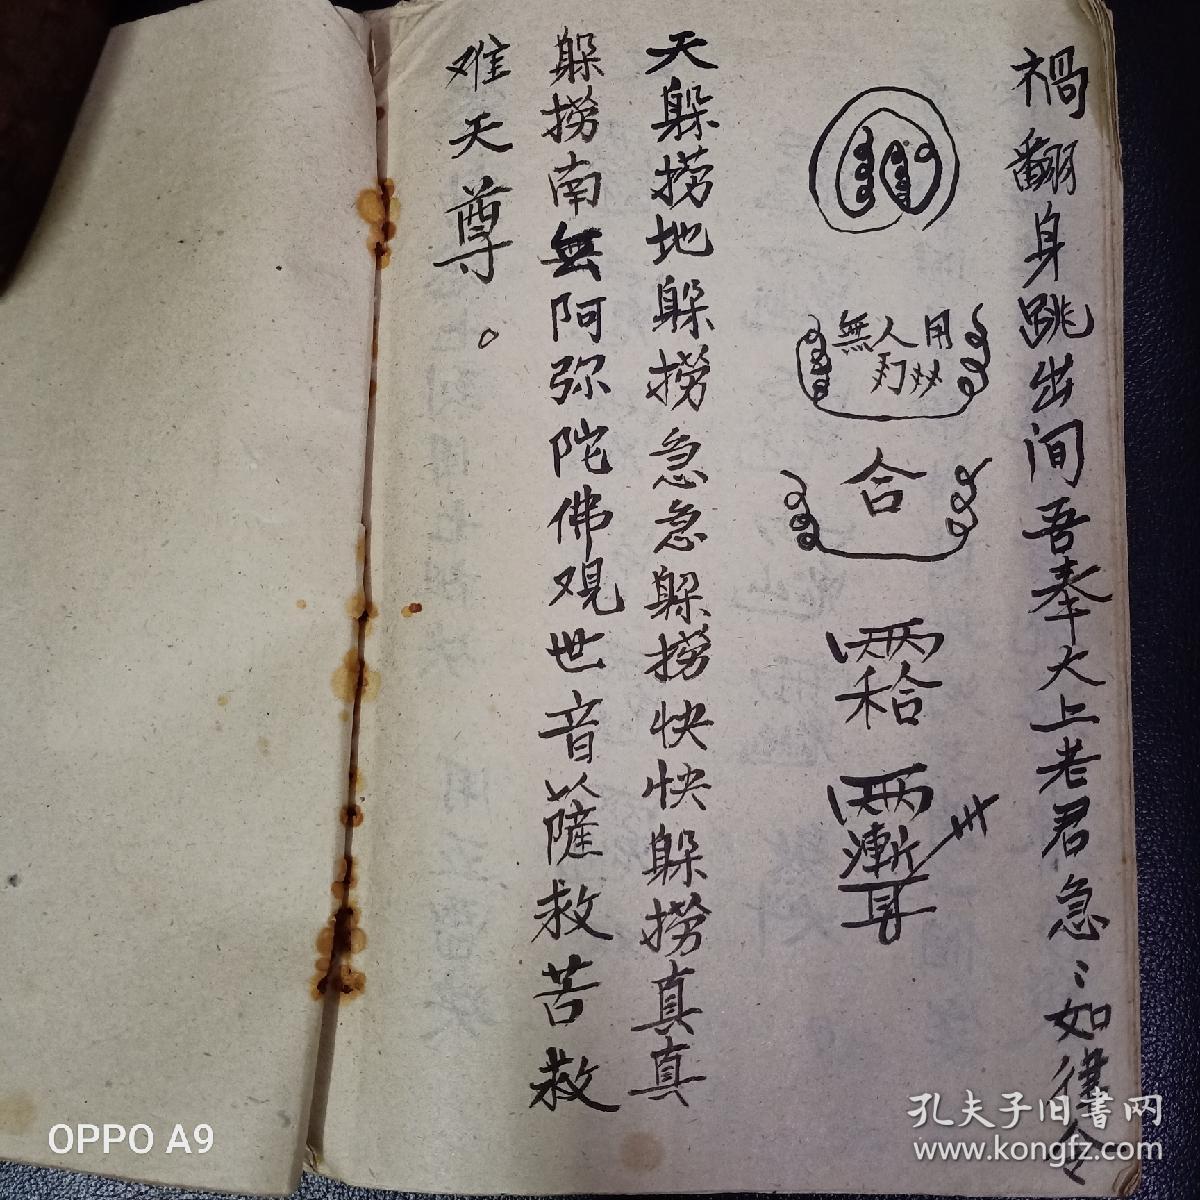 禍翻身跳出间吾奉大上老君急〻如律令
無人用
合
天躲捞地躲捞急急躲捞快快躲捞真真
躲捞南無阿弥陀佛观世音薩救苦救
难天尊。
孔夫子旧書网
www.kongfz.com
OPPO A9